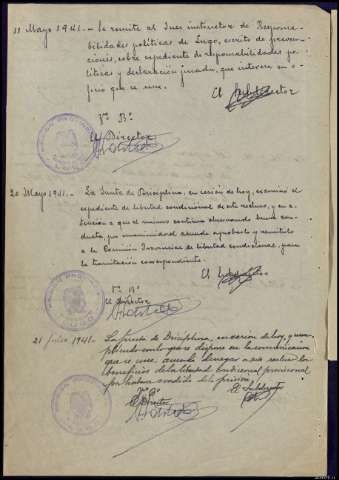 11 Mayo 1941.- Se remite al Juez instructor de Responsa-
bilidades políticas de Lugo, escrito de preven-
ciones, sobre expediente de reponsabilidades po-
líticas y declaración jurada, que interesa en o-
ficio que se une.
El
Vº Bº
El Director
20 Mayo 1941.- La Junta de Disciplina, en sesión de hoy, examinó el
expediente de libertad condicional de este recluso, y en a-
tención a que el mismo continua observando buena con-
ducta, por unanimidad acuerda aprobarlo y remitirlo
a la Comisión Provincial de libertad condicional, para
la tramitación correspondiente.
El
Vº Bº
El Director
21 Julio 1941.- La Junta de Disciplina, en sesión de hoy, y cum-
pliendo con lo que se dispone en la comunicación
que se une, acuerda denegar a este recluso los
beneficios de la libertad condicional provisional
por
Vº Bº
El Director